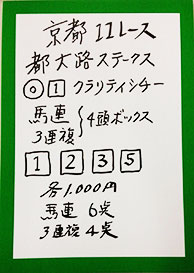 京都11レース
都大路ステークス
◎1 クラリティシチー
馬連
3連複 4頭ボックス
1 2 3 5
各1,000円
馬連 6点
3連複 4点